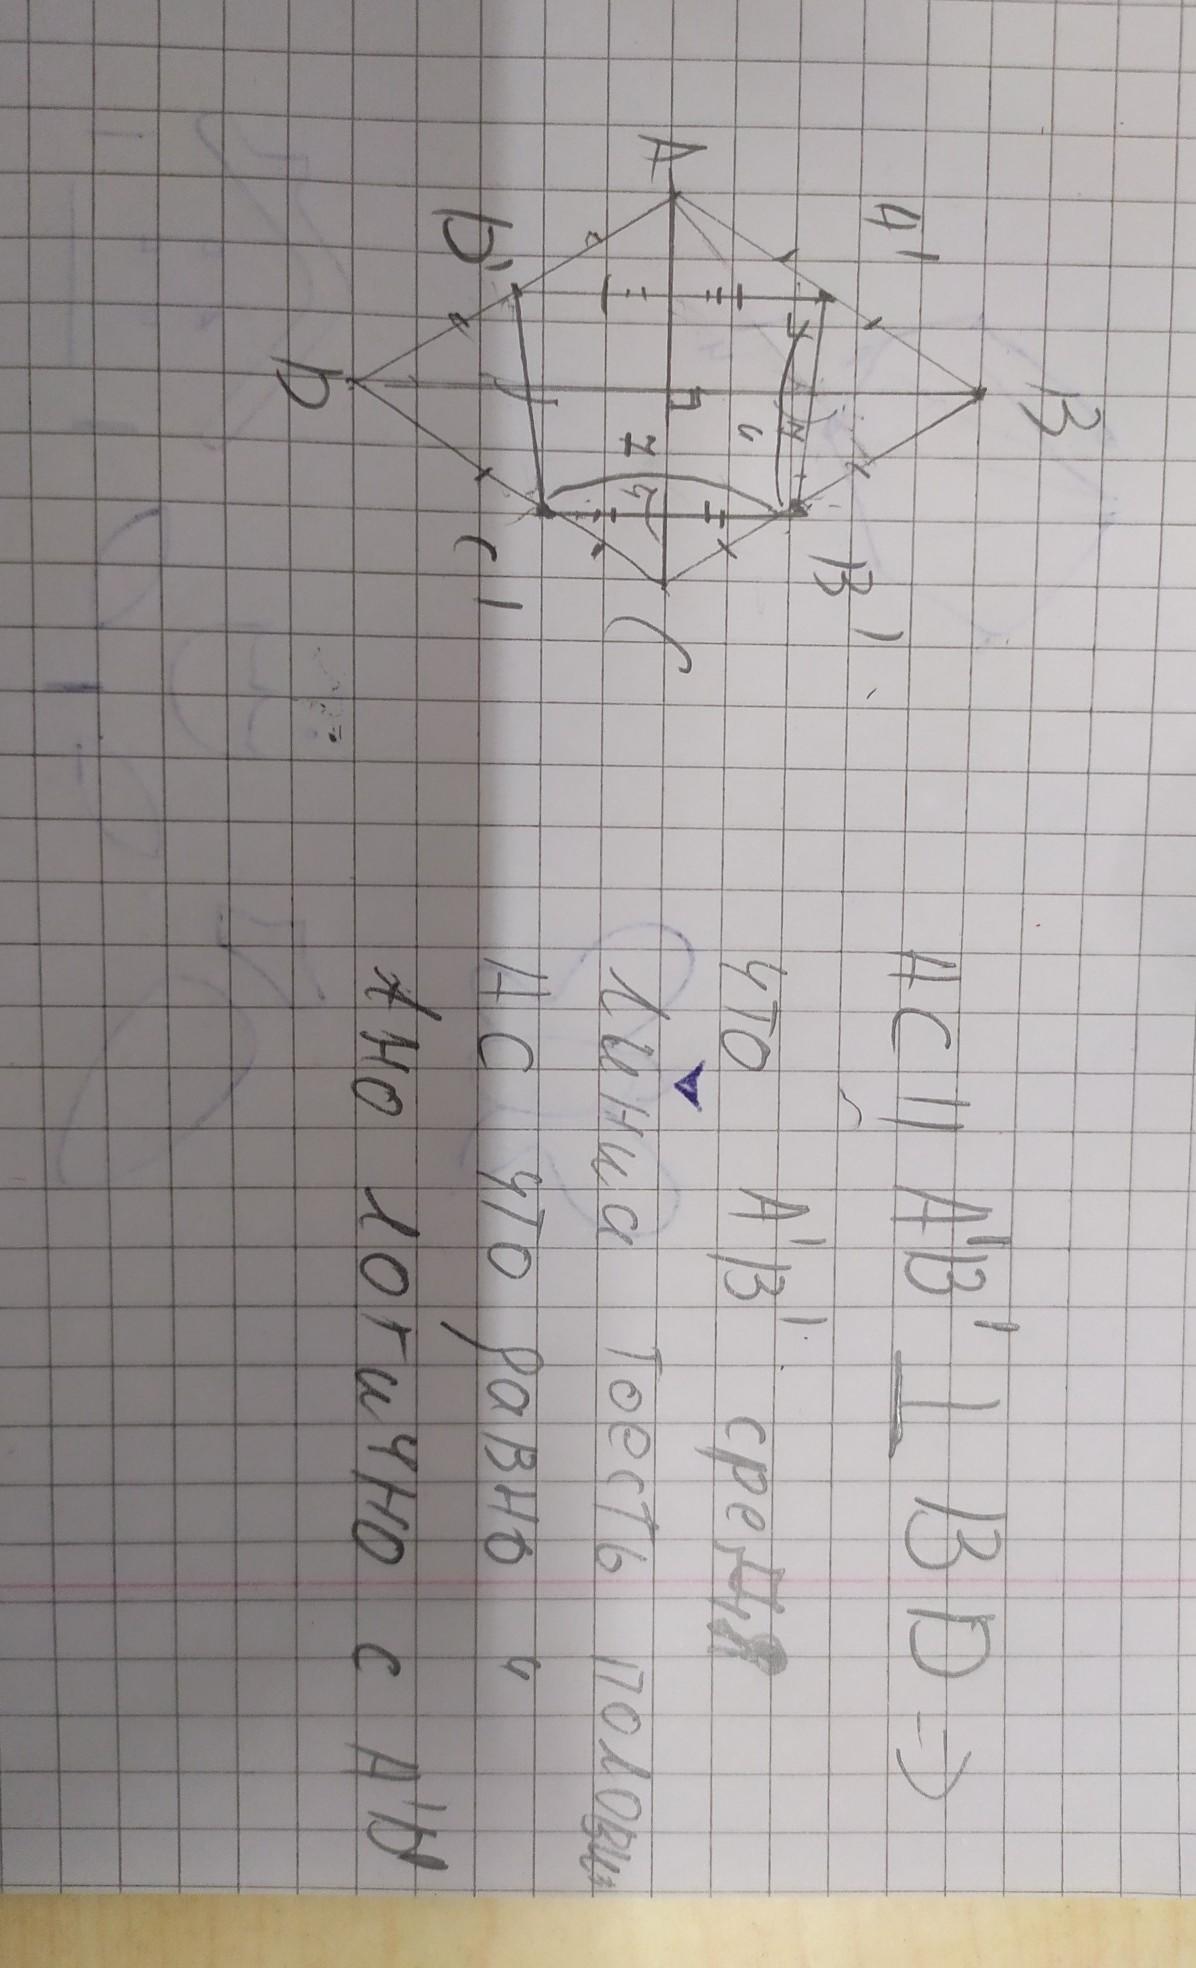 A
A'
B
D'
D
4
7
C'
B'
C
AC || A'B' ⊥ BD ⇒
что A'B' средня
линиа тоесть половин
AC что равно 4
логично с A'D'